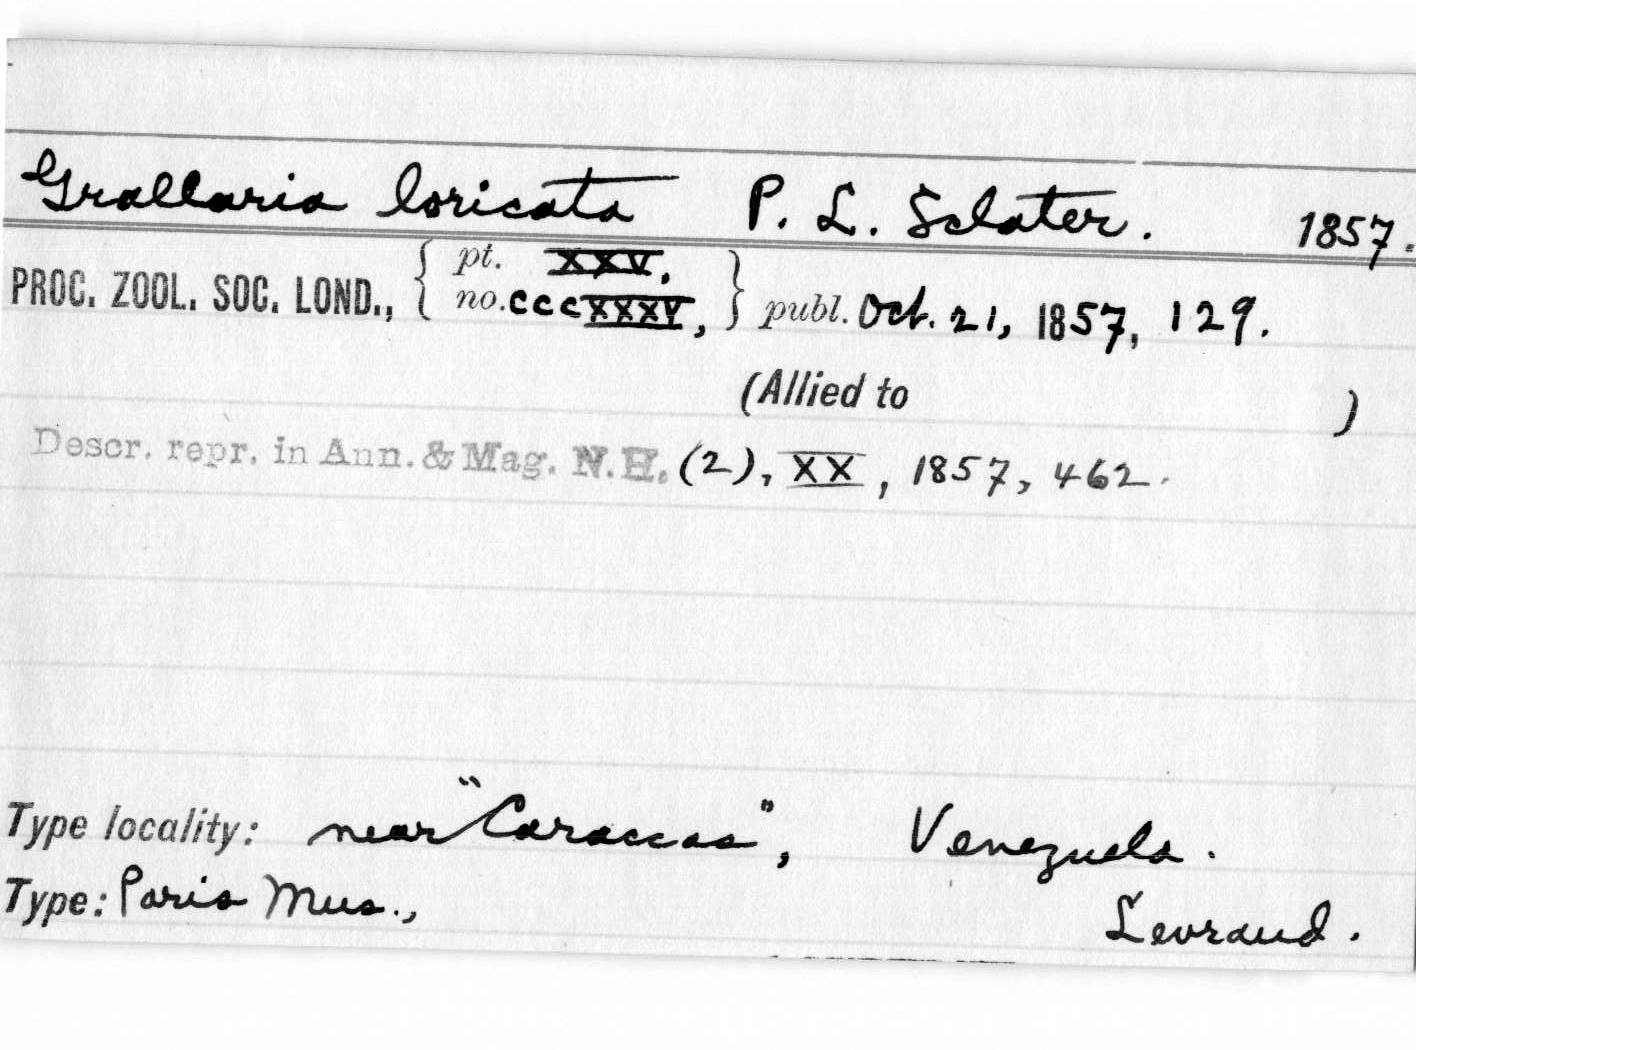 Grallaria loricata P. L. Sclater. 1857.
PROC. ZOOL. SOC. LOND., { pt. XXV, no. cccXXXV, } publ. Oct. 21, 1857, 129.
(Allied to )
Descr. repr. in Ann. & Mag. N.H. (2), XX, 1857, 462.
Type locality: near "Caraccas", Venezuela.
Type: Paris Mus., Levraud.